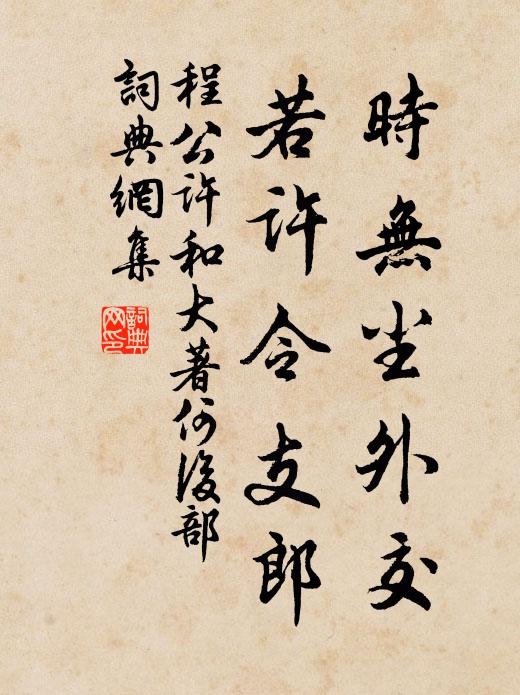 時無尘外交
若許令支郎
程公許和大著何後部
詞典網集
詞典网印